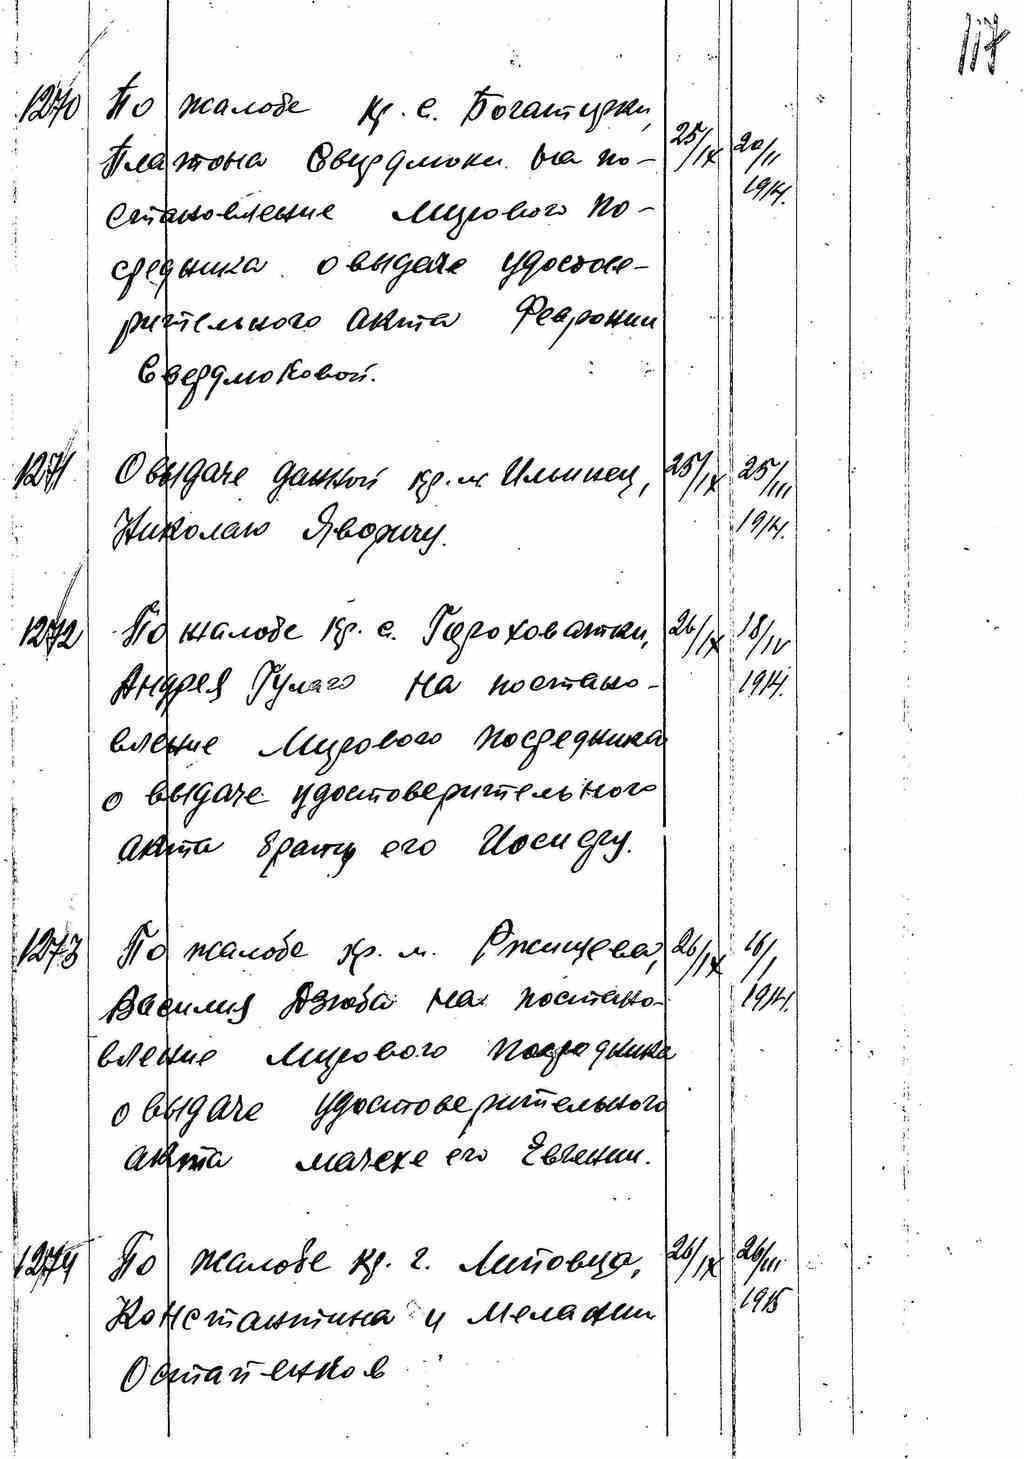 117
1270 По жалобе кр. с. Богатырки, 25/IX 20/II
Платона Свердлюка на по-
1914.
становление Мирового По-
средника о выдаче удостове-
рительного акта Февронии
Свердлюковой.
1271 О выдаче данной кр. м Ильинец, 25/IX 25/III
Николаю Яворичу. 1914.
1272 По жалобе кр. с. Гороховатки, 26/IX 18/IV
Андрея Гулаго на постано- 1914.
вление Мирового Посредника
о выдаче удостоверительного
акта брату его Иосифу.
1273 По жалобе кр. м. Ржищева, 26/IX 16/I
Василия Дзюба на постано- 1914.
вление Мирового Посредника
о выдаче удостоверительного
акта мачехе его Евгении.
1274 По жалобе кр. г. Липовца, 26/IX 26/III
Константина и Мелании 1915
Остапенков